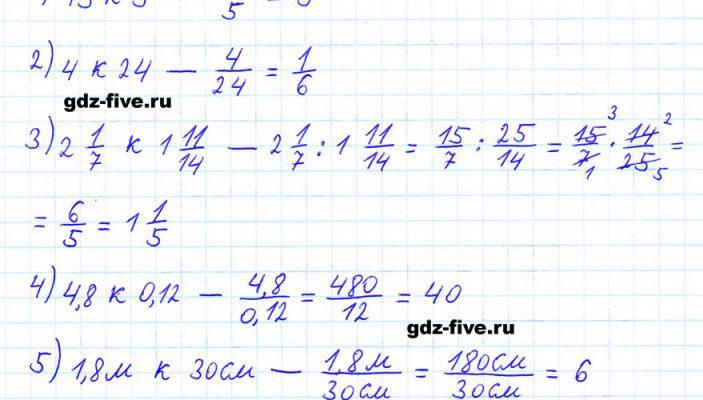 5
2) 4 к 24 — 4/24 = 1/6
gdz-five.ru
3) 2 1/7 к 1 11/14 — 2 1/7 : 1 11/14 = 15/7 : 25/14 = 15 3/7 1 · 14 2/25 5 =
= 6/5 = 1 1/5
4) 4,8 к 0,12 — 4,8/0,12 = 480/12 = 40
gdz-five.ru
5) 1,8м к 30см — 1,8м/30см = 180см/30см = 6